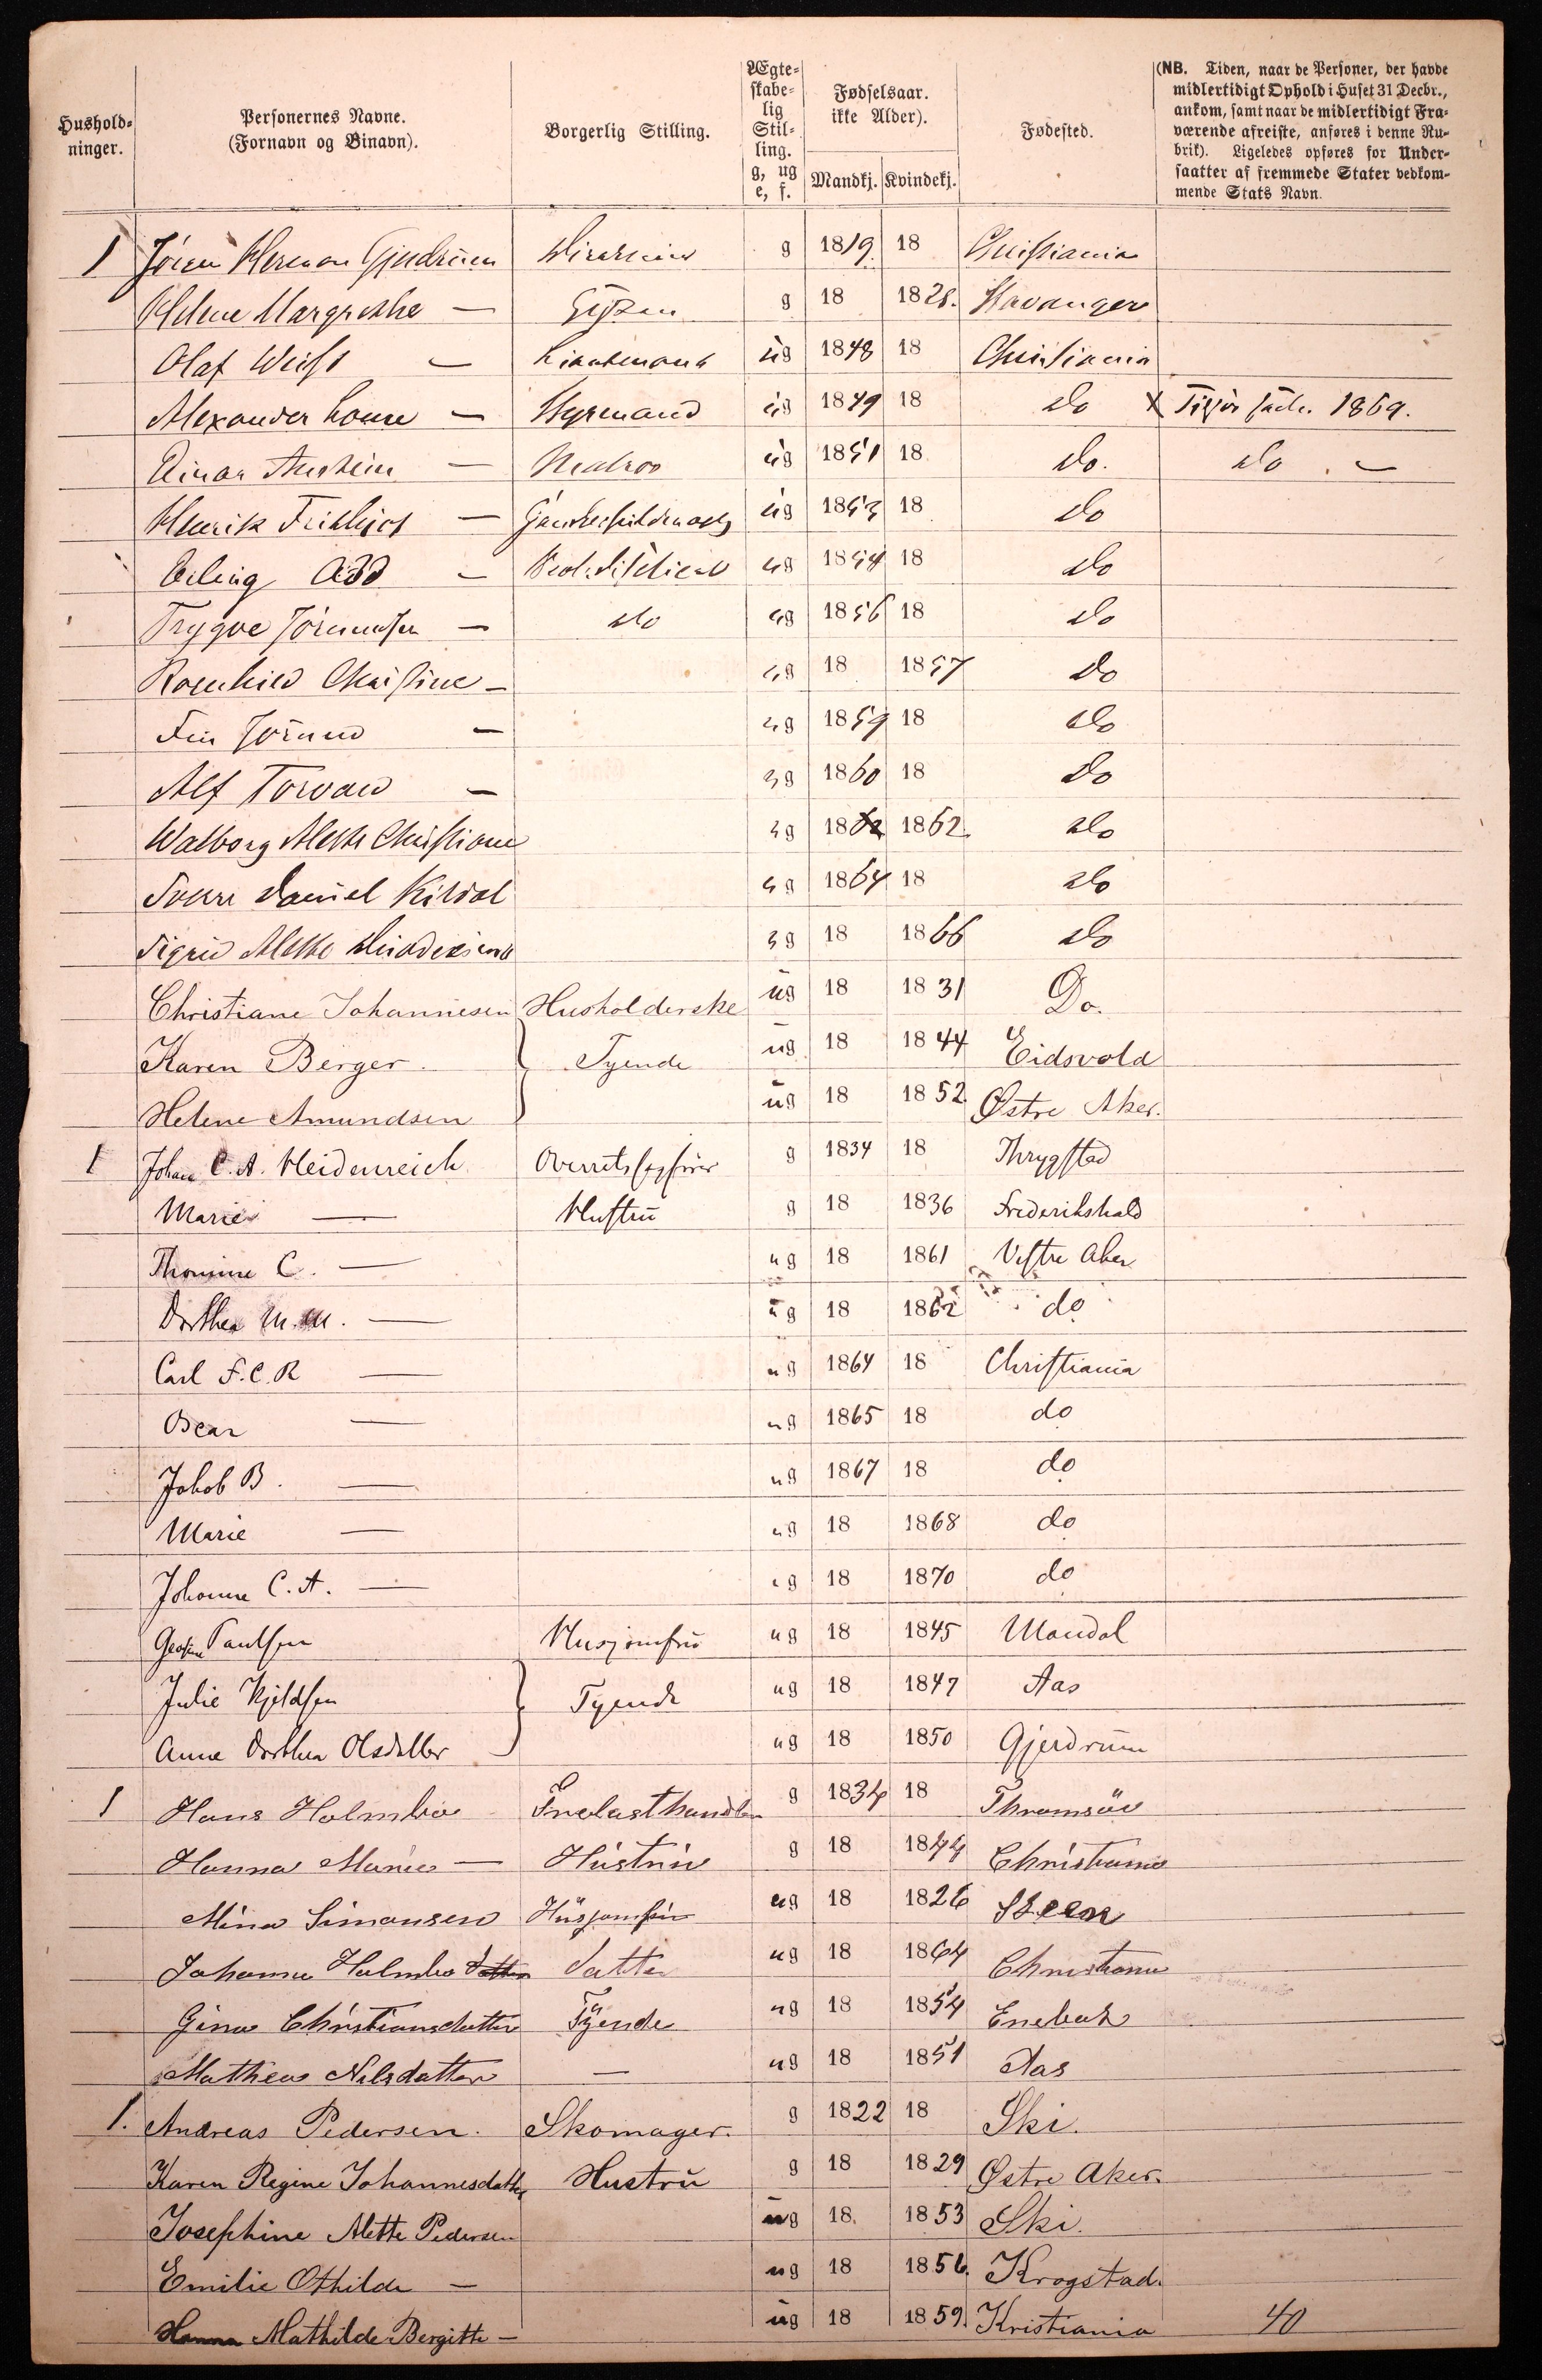 Hushold-
ninger.
Personernes Navne.
(Fornavn og Binavn).
Borgerlig Stilling.
Ægte-
skabe-
lig
Stil-
ling.
g, ug
e, f.
Fødselsaar.
ikke Alder).
Mandkj. Kvindekj.
Fødested.
(NB. Tiden, naar de Personer, der havde
midlertidigt Ophold i Huset 31 Decbr.,
ankom, samt naar de midlertidigt Fra-
værende afreiste, anføres i denne Ru-
brik). Ligeledes opføres for Under-
saatter af fremmede Stater vedkom-
mende Stats Navn.
1 Herman g 1819 18 Christiania
Helene Margrethe — g 18 1828. Stavanger
Olaf — ug 1848 18 Christiania
Alexander — Styrmand ug 1849 18 do X 1869.
Einar — Matros ug 1851 18 do. do . —
Henrik — ug 1853 18 do
Erling Odd — ug 1854 18 do
Trygve — do ug 1856 18 do
Christine — ug 18 1857 do
Fin — ug 1859 18 do
Alf Torvald — ug 1860 18 do
Walborg Mette Christiane ug 18 1862. do
Daniel Kildal ug 1864 18 do
Sigrid ug 18 1866 do
Christiane Johannesen Husholderske ug 18 1831 Do.
Karen Berger. Tyende ug 18 1844 Eidsvold
Helene Amundsen ug 18 1852. Østre Aker.
1 Johan C. A. Heidenreich Overretssagfører g 1834 18 Thrygstad
Marie — Hustru g 18 1836 Frederikshald
Thomine C. — ug 18 1861 Vestre Aker
Dorthea M. M. — ug 18 1862 do
Carl F. C. R — ug 1864 18 Christiania
Oscar — ug 1865 18 do
Jakob B. — ug 1867 18 do
Marie — ug 18 1868 do
Johanne C. A. — ug 18 1870 do
Paulsen Husjomfru ug 18 1845 Mandal
Julie Kjeldsen Tyende ug 18 1847 Aas
Anne Dorthea Olsdatter ug 18 1850 Gjerdrum
1 Hans Holmboe Trælasthandler g 1834 18 Thromsöe
Hanna Marie — Hústrú g 18 1844 Christiania
Mina Simonsen Húsjomfrú ug 18 1826 Skeen
Johanne Holmboe Datter ug 18 1864 Christiania
Gina Christiansdatter Tyende ug 18 1854 Enebak
Mathea Nilsdatter — ug 18 1851 Aas
1. Andreas Pedersen. Skomager. g 1822 18 Ski.
Karen Regine Johannesdatter Hustru g 18 1829 Østre Aker.
Josephine Mette Pedersen ug 18. 1853 Ski.
Emilie Othilde — ug 18 1856. Krogstad.
Hanna Mathilde Bergitte — ug 18 1859. Kristiania 40